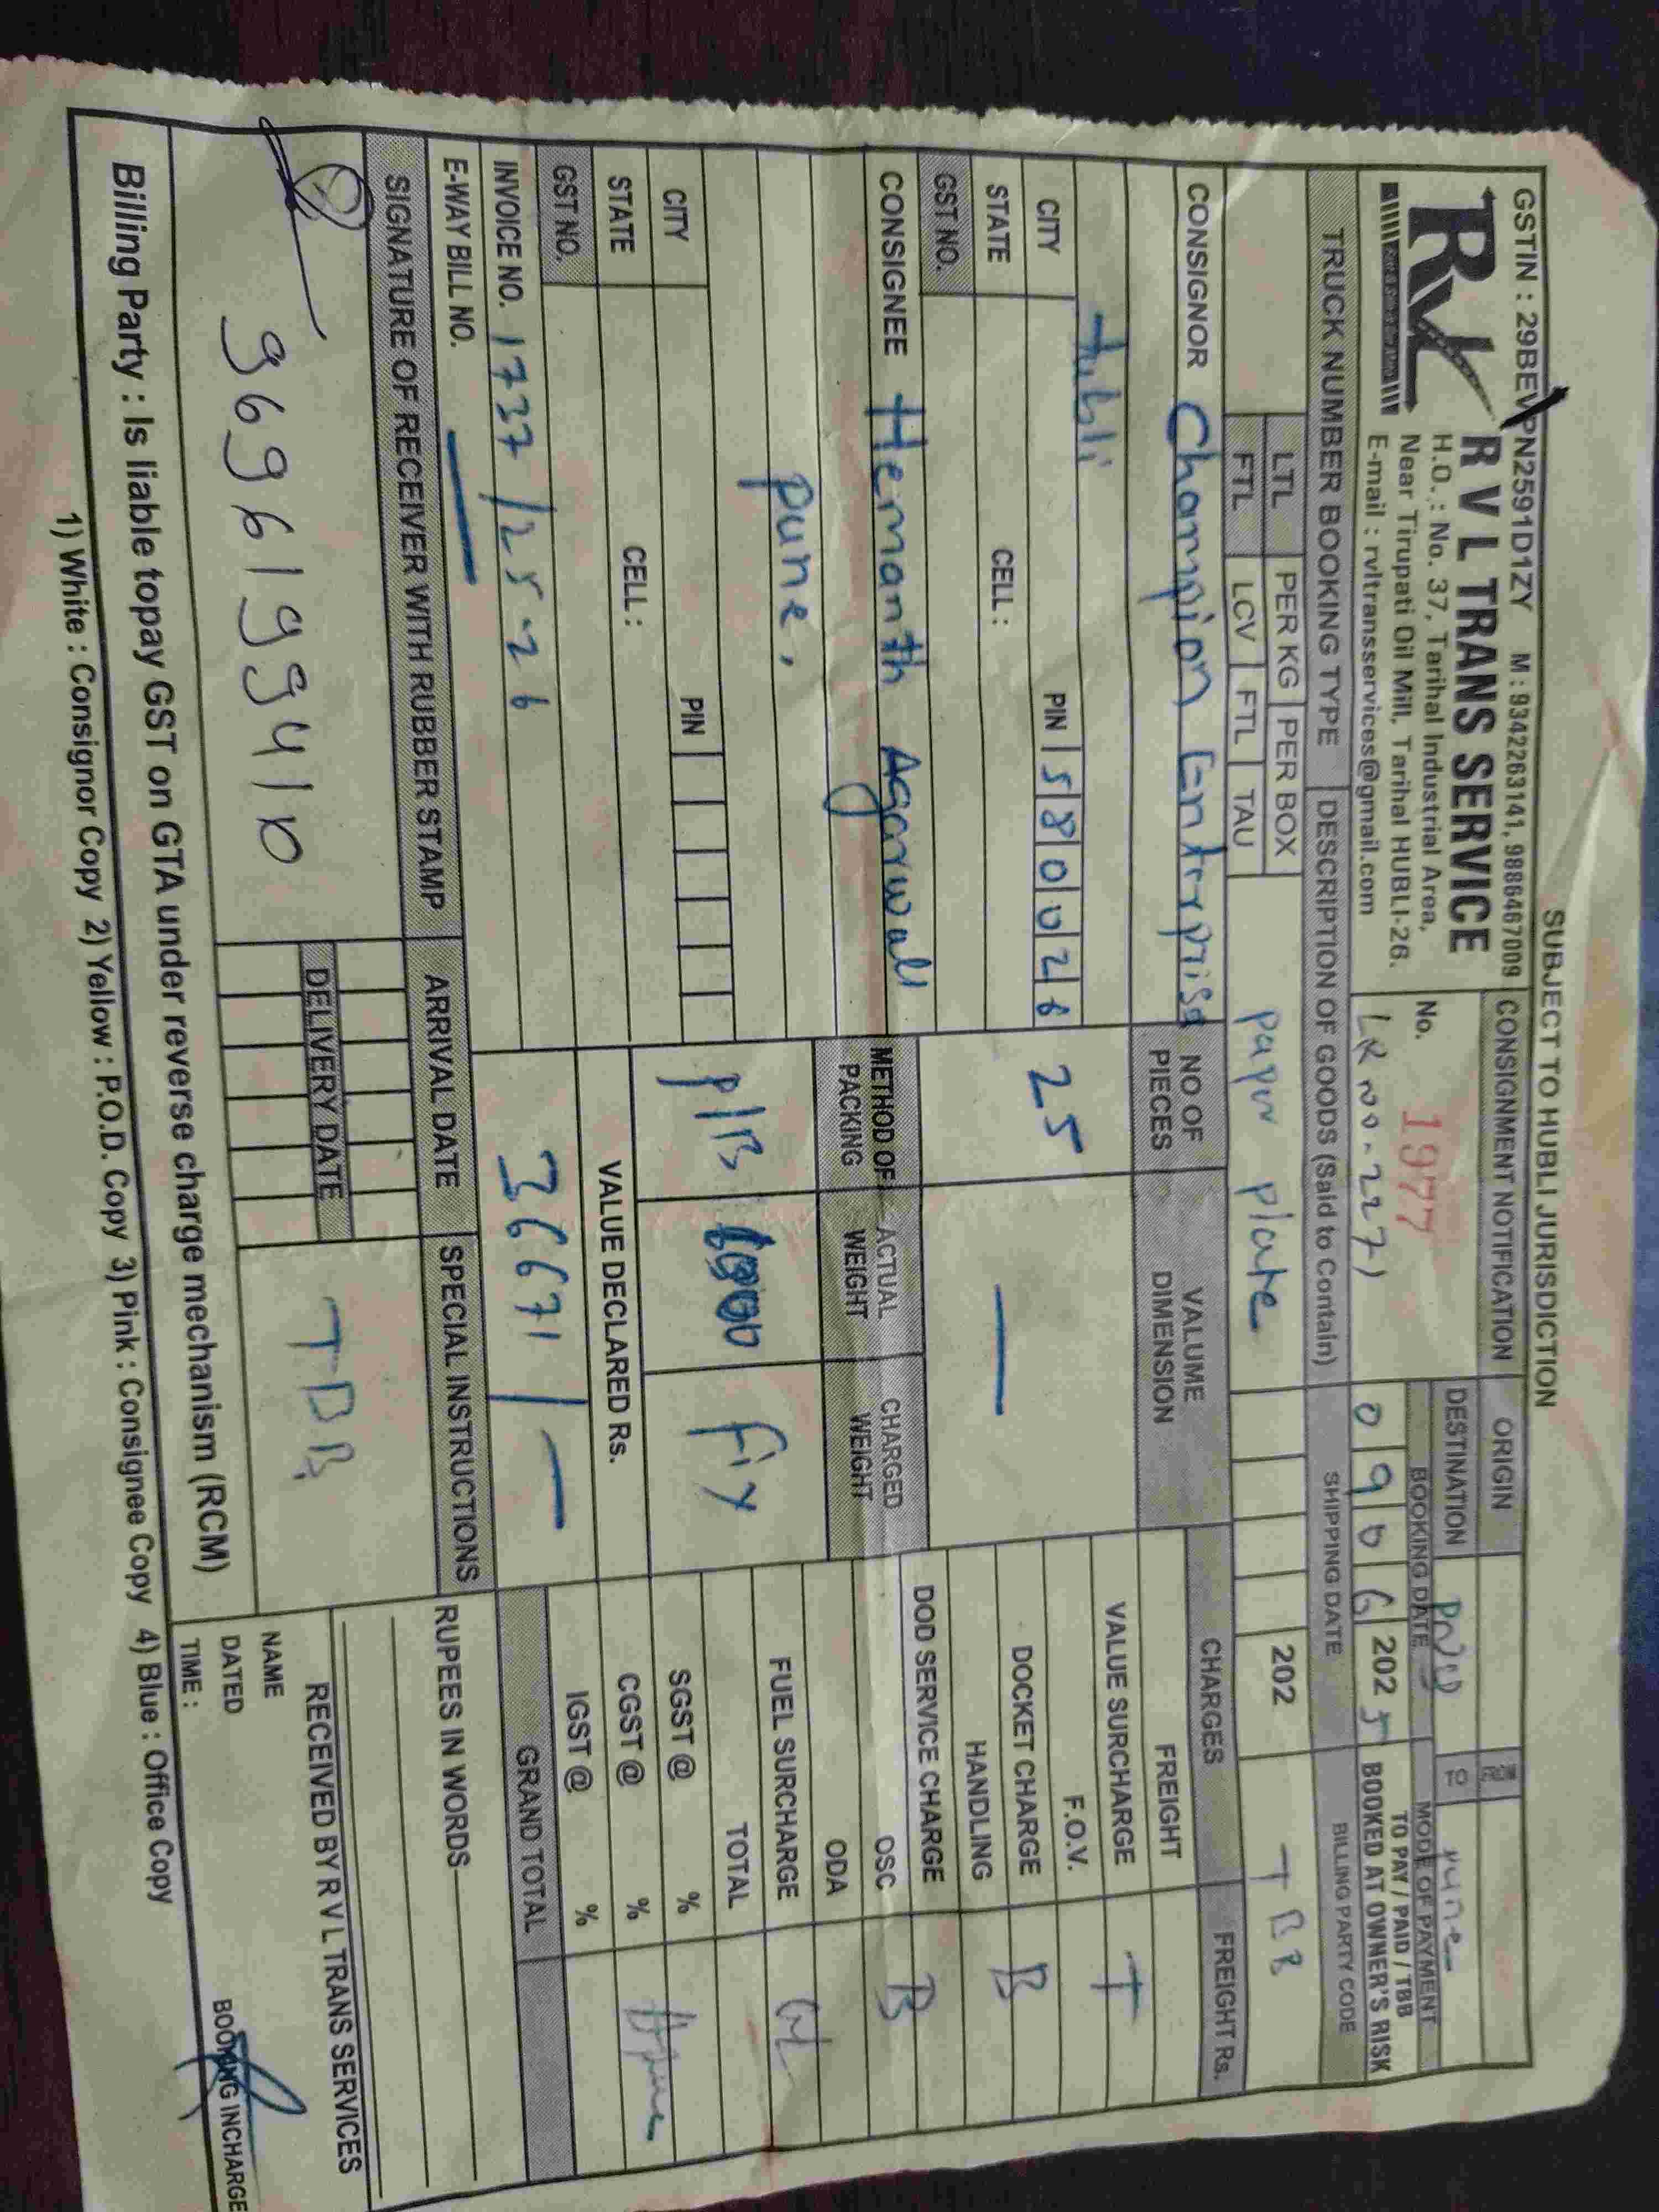 SUBJECT TO HUBLI JURISDICTION
GSTIN : 29BEVPN2591D1ZY M : 9342263141, 9886467009
R V L TRANS SERVICE
H.O. : No. 37, Tarihal Industrial Area,
Near Tirupati Oil Mill, Tarihal HUBLI-26.
E-mail : rvltransservices@gmail.com
CONSIGNMENT NOTIFICATION
No. 1977
LR no. 2271
ORIGIN
DESTINATION PNQ
TO Pune
BOOKING DATE
0 9 0 6 2025
MODE OF PAYMENT
TO PAY / PAID / TBB
BOOKED AT OWNER'S RISK
TRUCK NUMBER BOOKING TYPE DESCRIPTION OF GOODS (Said to Contain) SHIPPING DATE BILLING PARTY CODE
LTL PER KG PER BOX
FTL LCV FTL TAU
paper plate
202
TBB
CONSIGNOR Champion Enterprise
Hubli
CITY PIN 5 8 0 0 2 6
STATE CELL :
GST NO.
CONSIGNEE Hemanth Agarwal
Pune,
CITY PIN
STATE CELL :
GST NO.
INVOICE NO. 1737/25-26
E-WAY BILL NO.
NO OF PIECES
25
VALUME DIMENSION
METHOD OF PACKING
P/B
ACTUAL WEIGHT
CHARGED WEIGHT
Fix
VALUE DECLARED Rs.
36671/-
CHARGES FREIGHT Rs.
FREIGHT
VALUE SURCHARGE T
F.O.V.
DOCKET CHARGE B
HANDLING
DOD SERVICE CHARGE
OSC B
ODA
FUEL SURCHARGE
TOTAL
SGST @ %
CGST @ %
IGST @ %
GRAND TOTAL
SIGNATURE OF RECEIVER WITH RUBBER STAMP
9696199410
ARRIVAL DATE
DELIVERY DATE
SPECIAL INSTRUCTIONS
TBB
RUPEES IN WORDS
RECEIVED BY R V L TRANS SERVICES
NAME
DATED
TIME :
BOOKING INCHARGE
Billing Party : Is liable topay GST on GTA under reverse charge mechanism (RCM)
1) White : Consignor Copy 2) Yellow : P.O.D. Copy 3) Pink : Consignee Copy 4) Blue : Office Copy